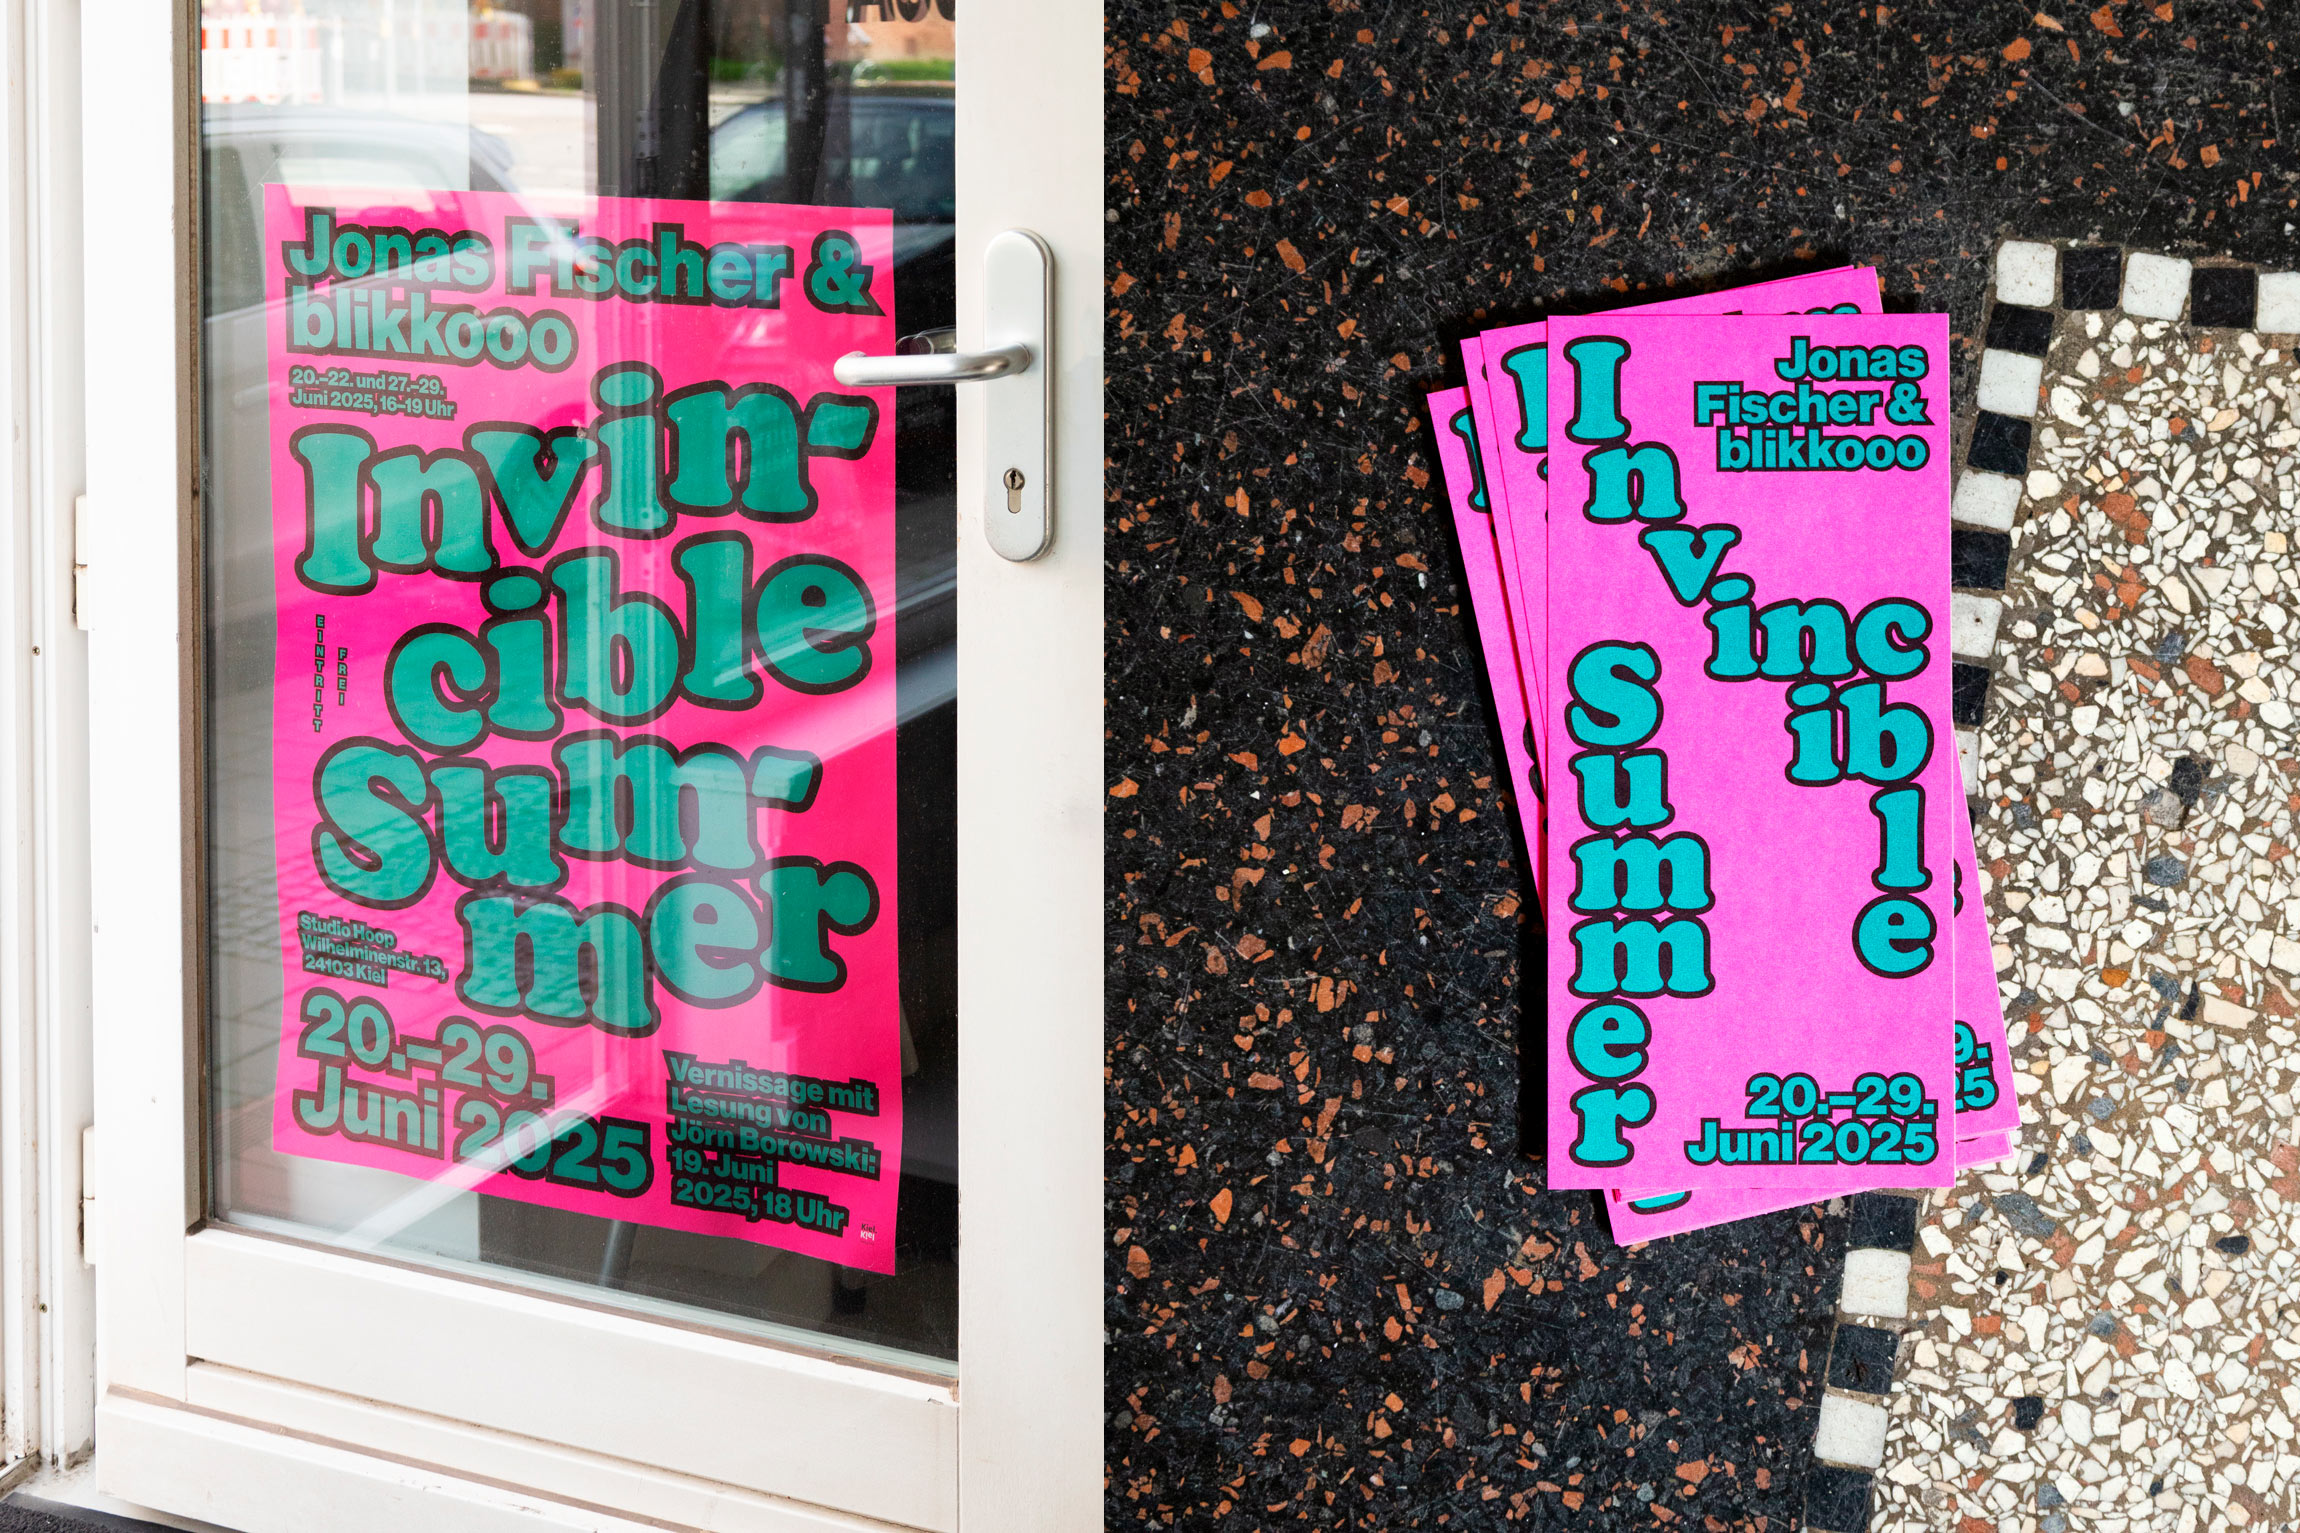 Jonas Fischer &
blikkooo
20.–22. und 27.–29.
Juni 2025, 16–19 Uhr
Invin-
cible
Sum-
mer
EINTRITT
FREI
Studio Hoop
Wilhelminenstr. 13,
24103 Kiel
20.–29.
Juni 2025
Vernissage mit
Lesung von
Jörn Borowski:
19. Juni
2025, 18 Uhr
Kiel.
Kiel
Jonas
Fischer &
blikkooo
I
n
v
inc
ib
l
e
S
u
m
m
e
r
20.–29.
Juni 2025
9.
25